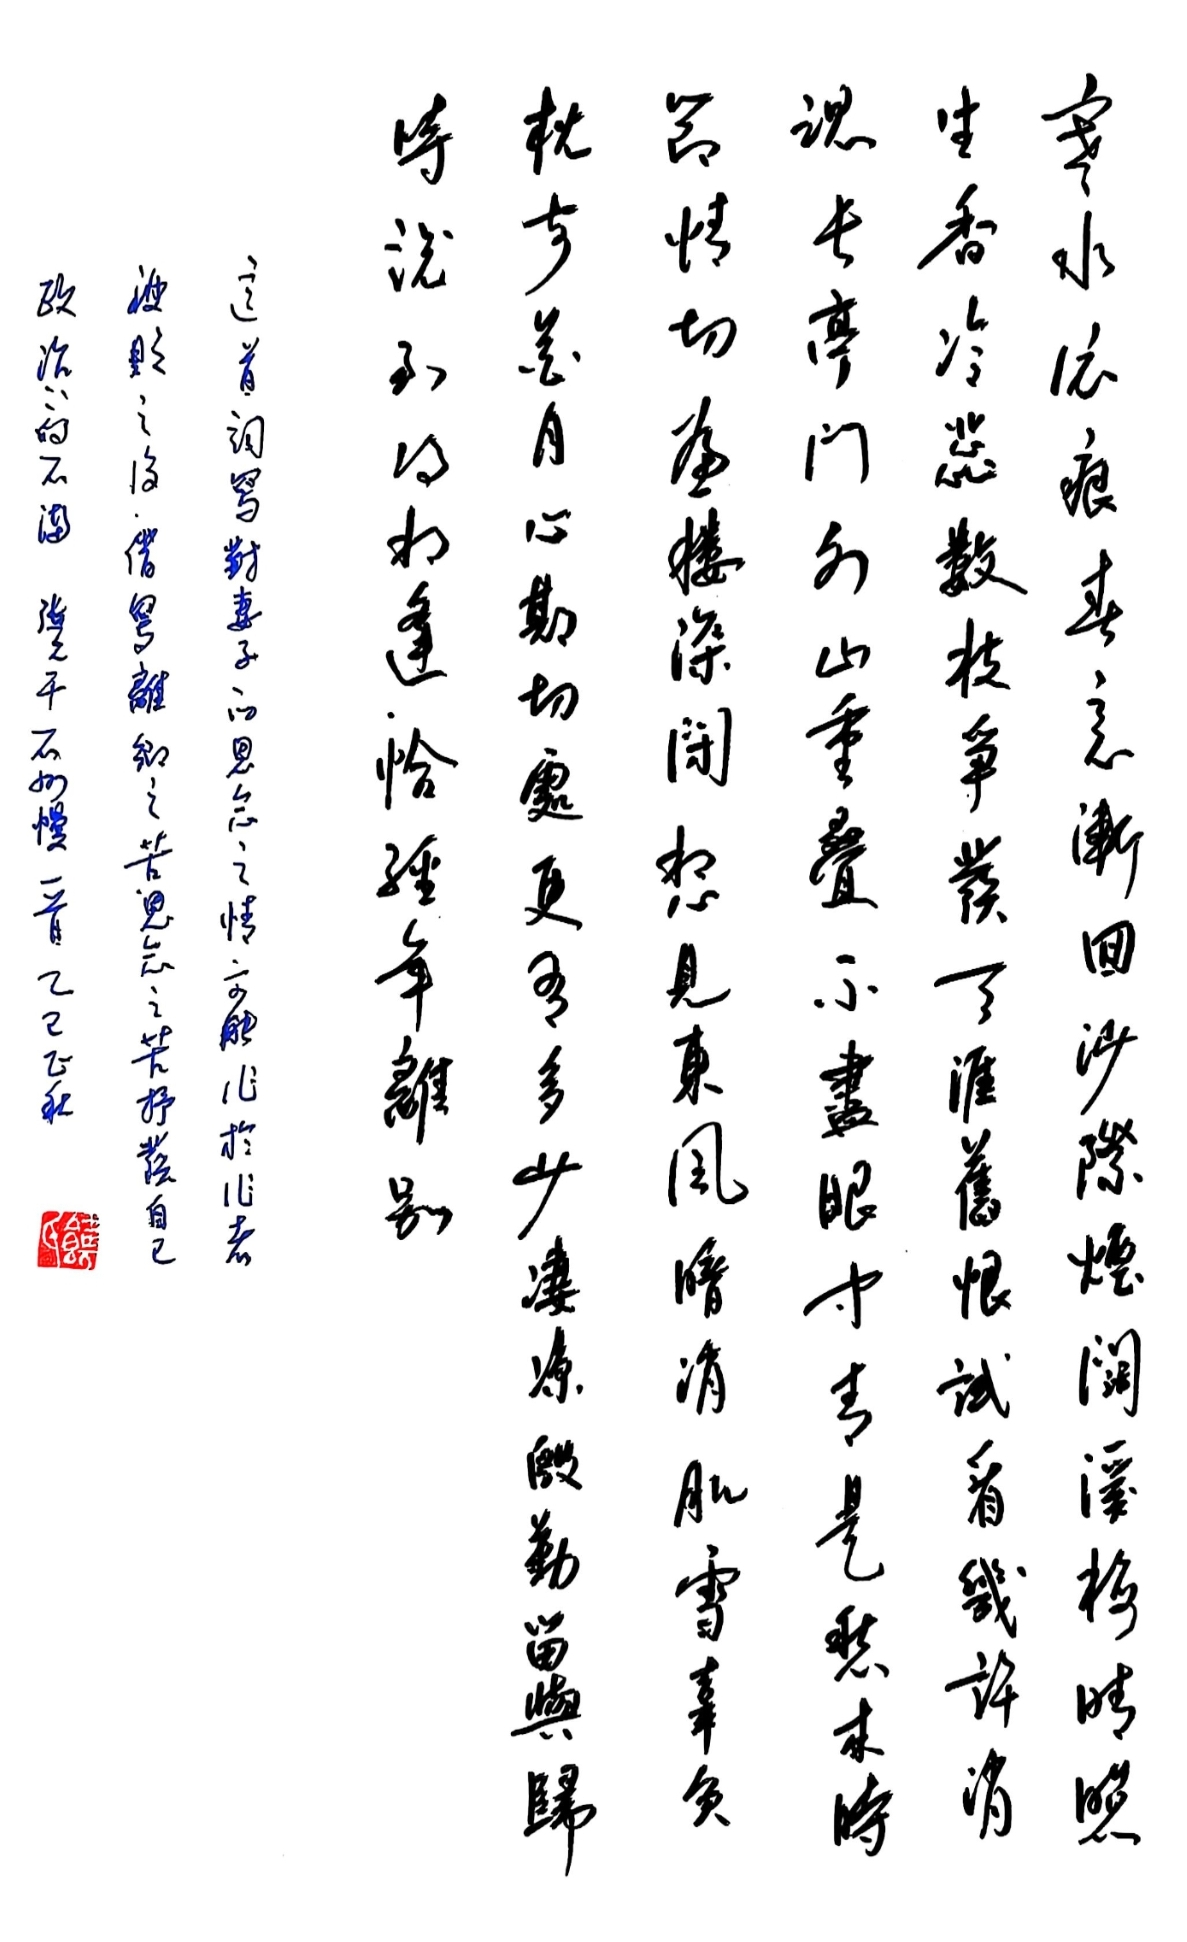 寒水依痕春意漸回沙際煙闊溪梅晴照
生香冷蕊數枝爭發天涯舊恨試看幾許消
魂長亭門外山重疊不盡眼中青是愁來時
節情切畫樓深閉想見東風暗消肌雪辜負
枕前花月心期切處更有多少淒涼殷勤留與歸
時說到得相逢恰經年離別
這首詞寫對妻子的思念之情可能作於作者
被貶之後借寫離鄉之苦思念之苦抒發自己
政治上的不滿 張元干石州慢一首 乙巳正秋